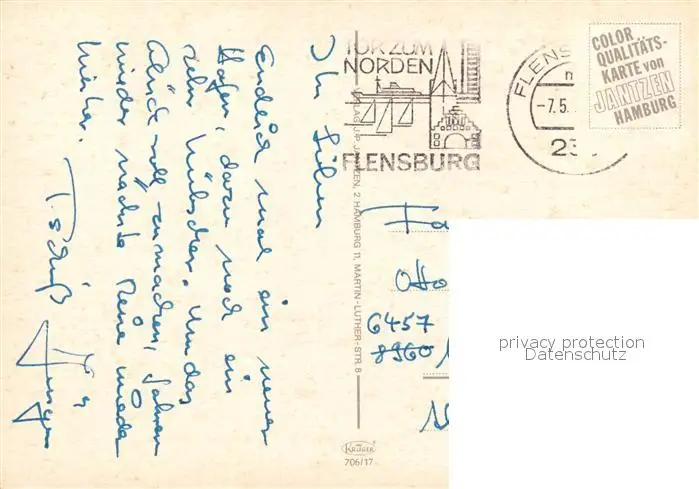 Ihr Lieben
Endlich mal ein neuer
Hafen, dazu noch ein
sehr hübscher. Um das
Glück voll zu machen, fahren
wir der nächste Reise wieder
hierher.
Tschüß
TOR ZUM
NORDEN
FLENSBURG
FLENS
-7.5.
23
COLOR
QUALITÄTS-
KARTE von
JANTZEN
HAMBURG
VERLAG J.P. JANTZEN, 2 HAMBURG 11, MARTIN-LUTHER-STR. 8
Fa
Otto
6457
8960
KRÜGER
706/17
privacy protection
Datenschutz